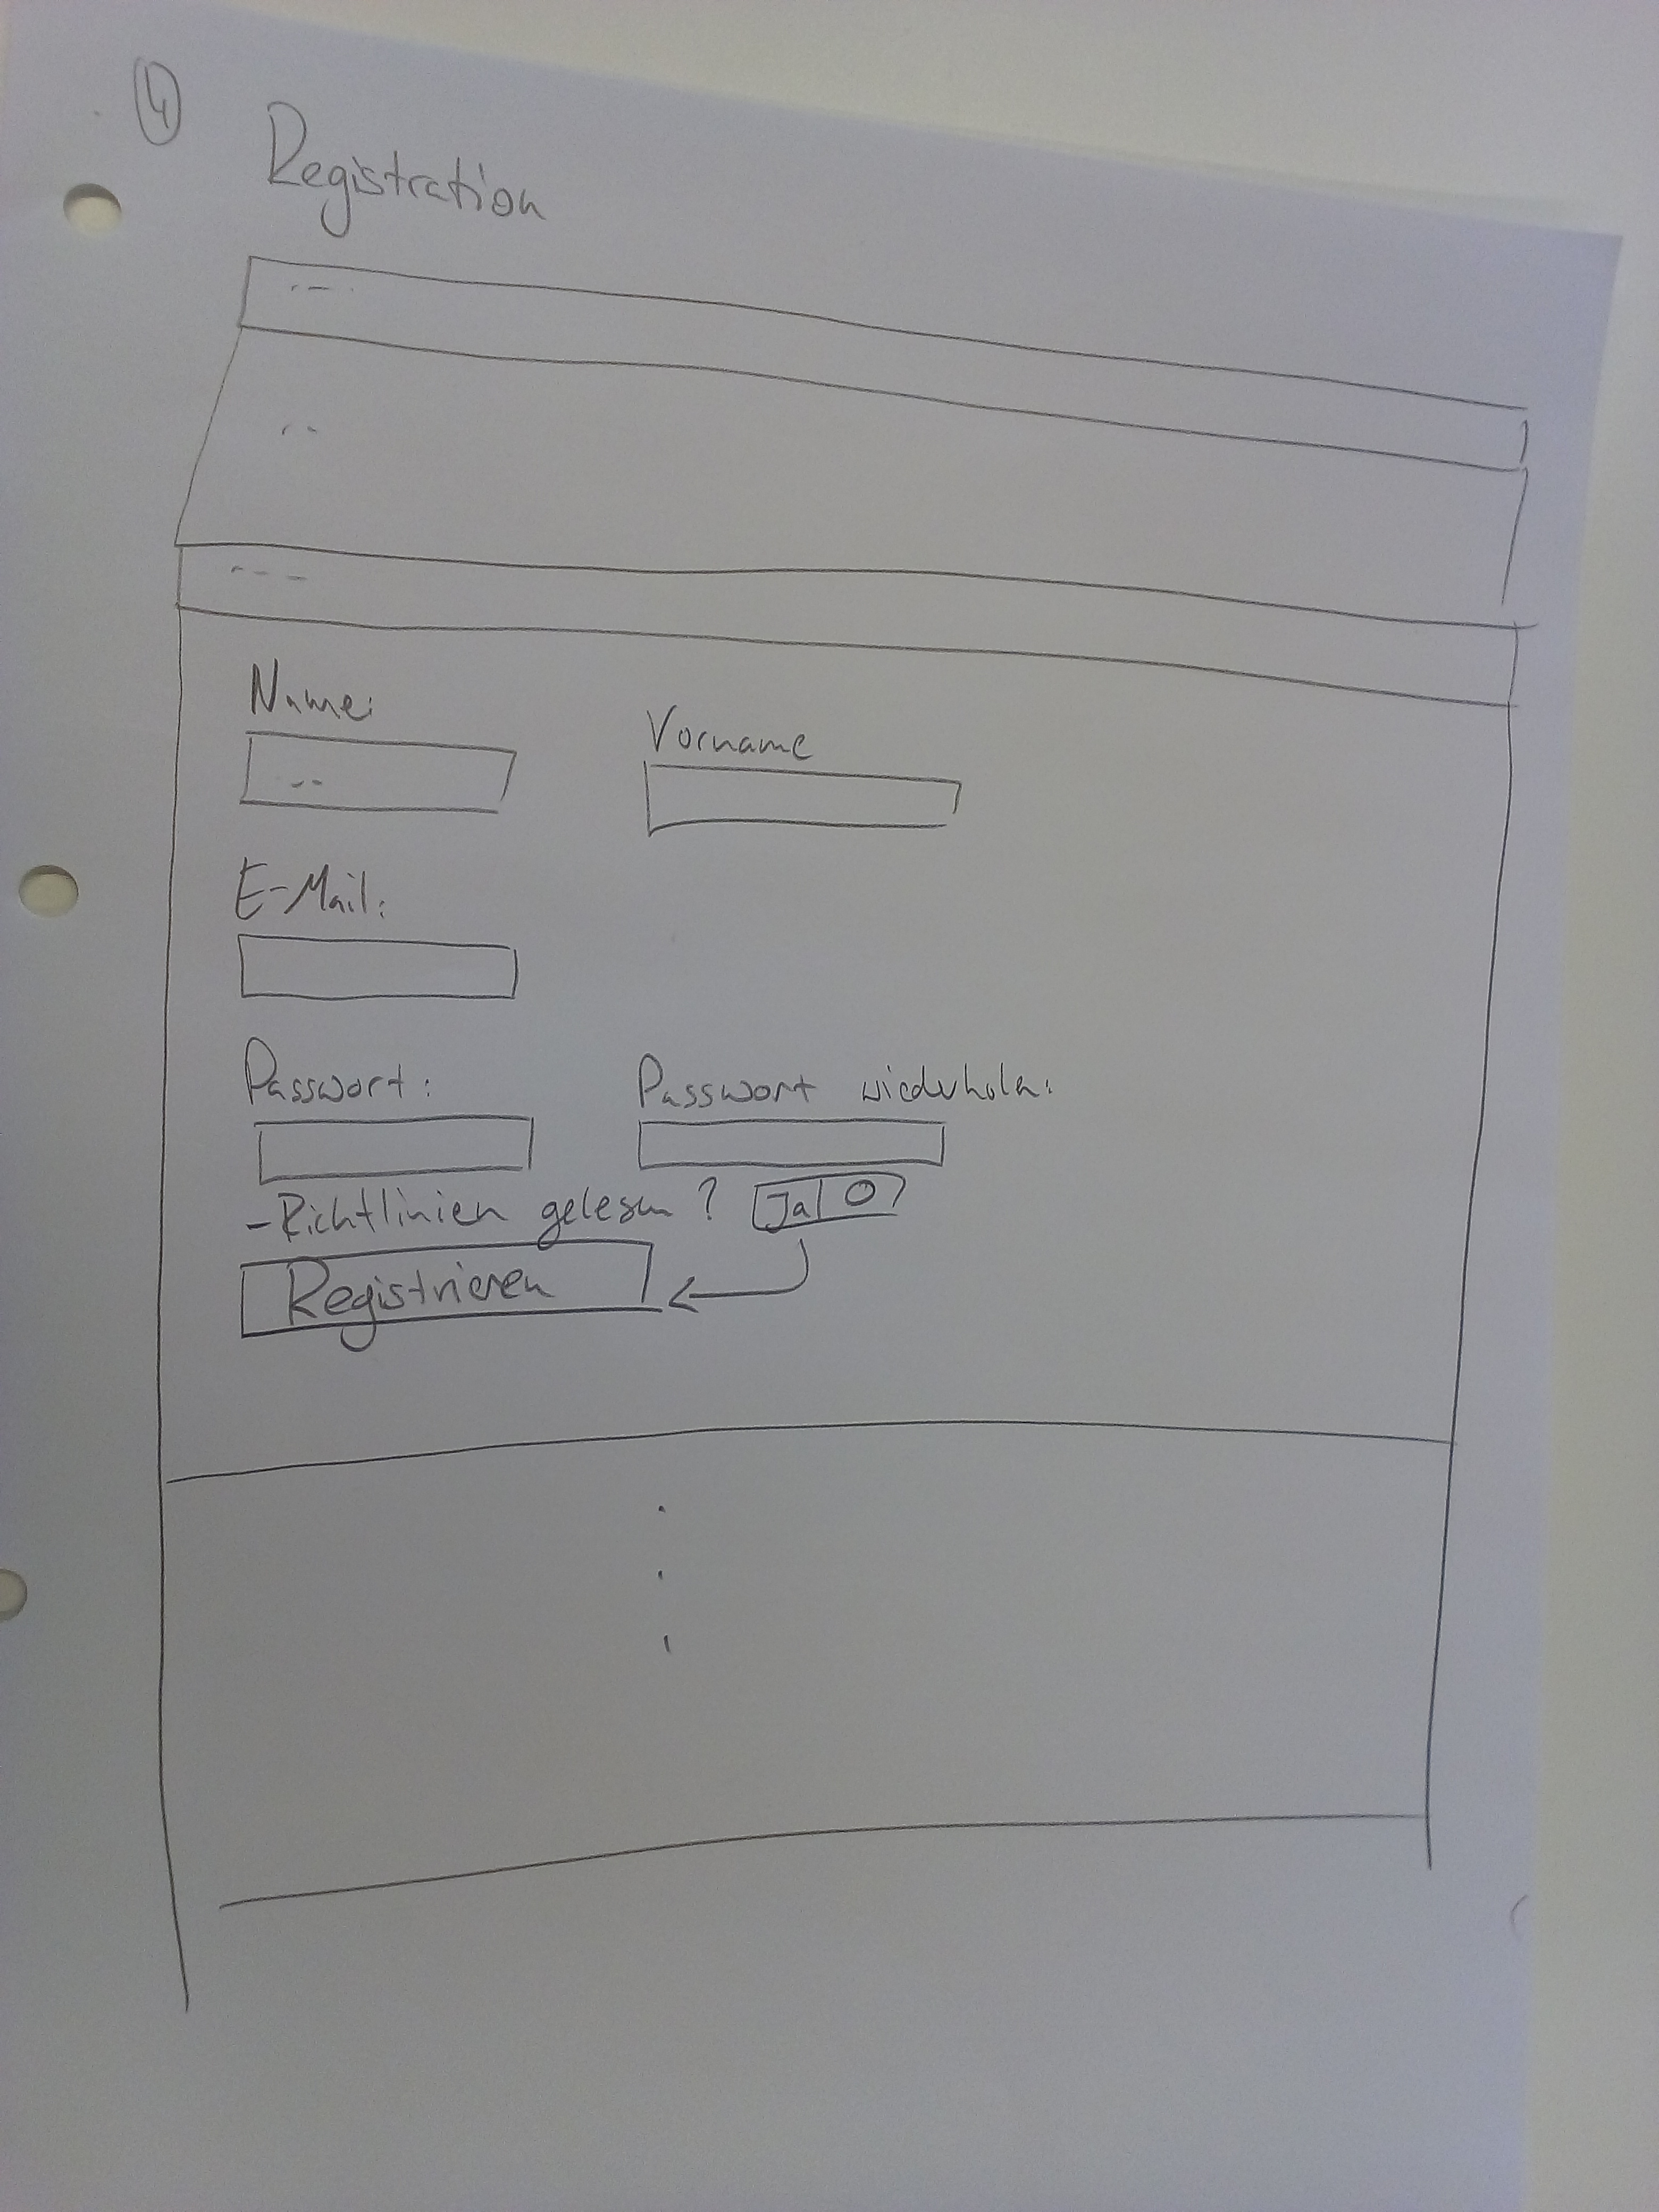 4
Registration
Name:
Vorname
E-Mail:
Passwort:
Passwort wiederholen:
-Richtlinien gelesen? Ja
Registrieren